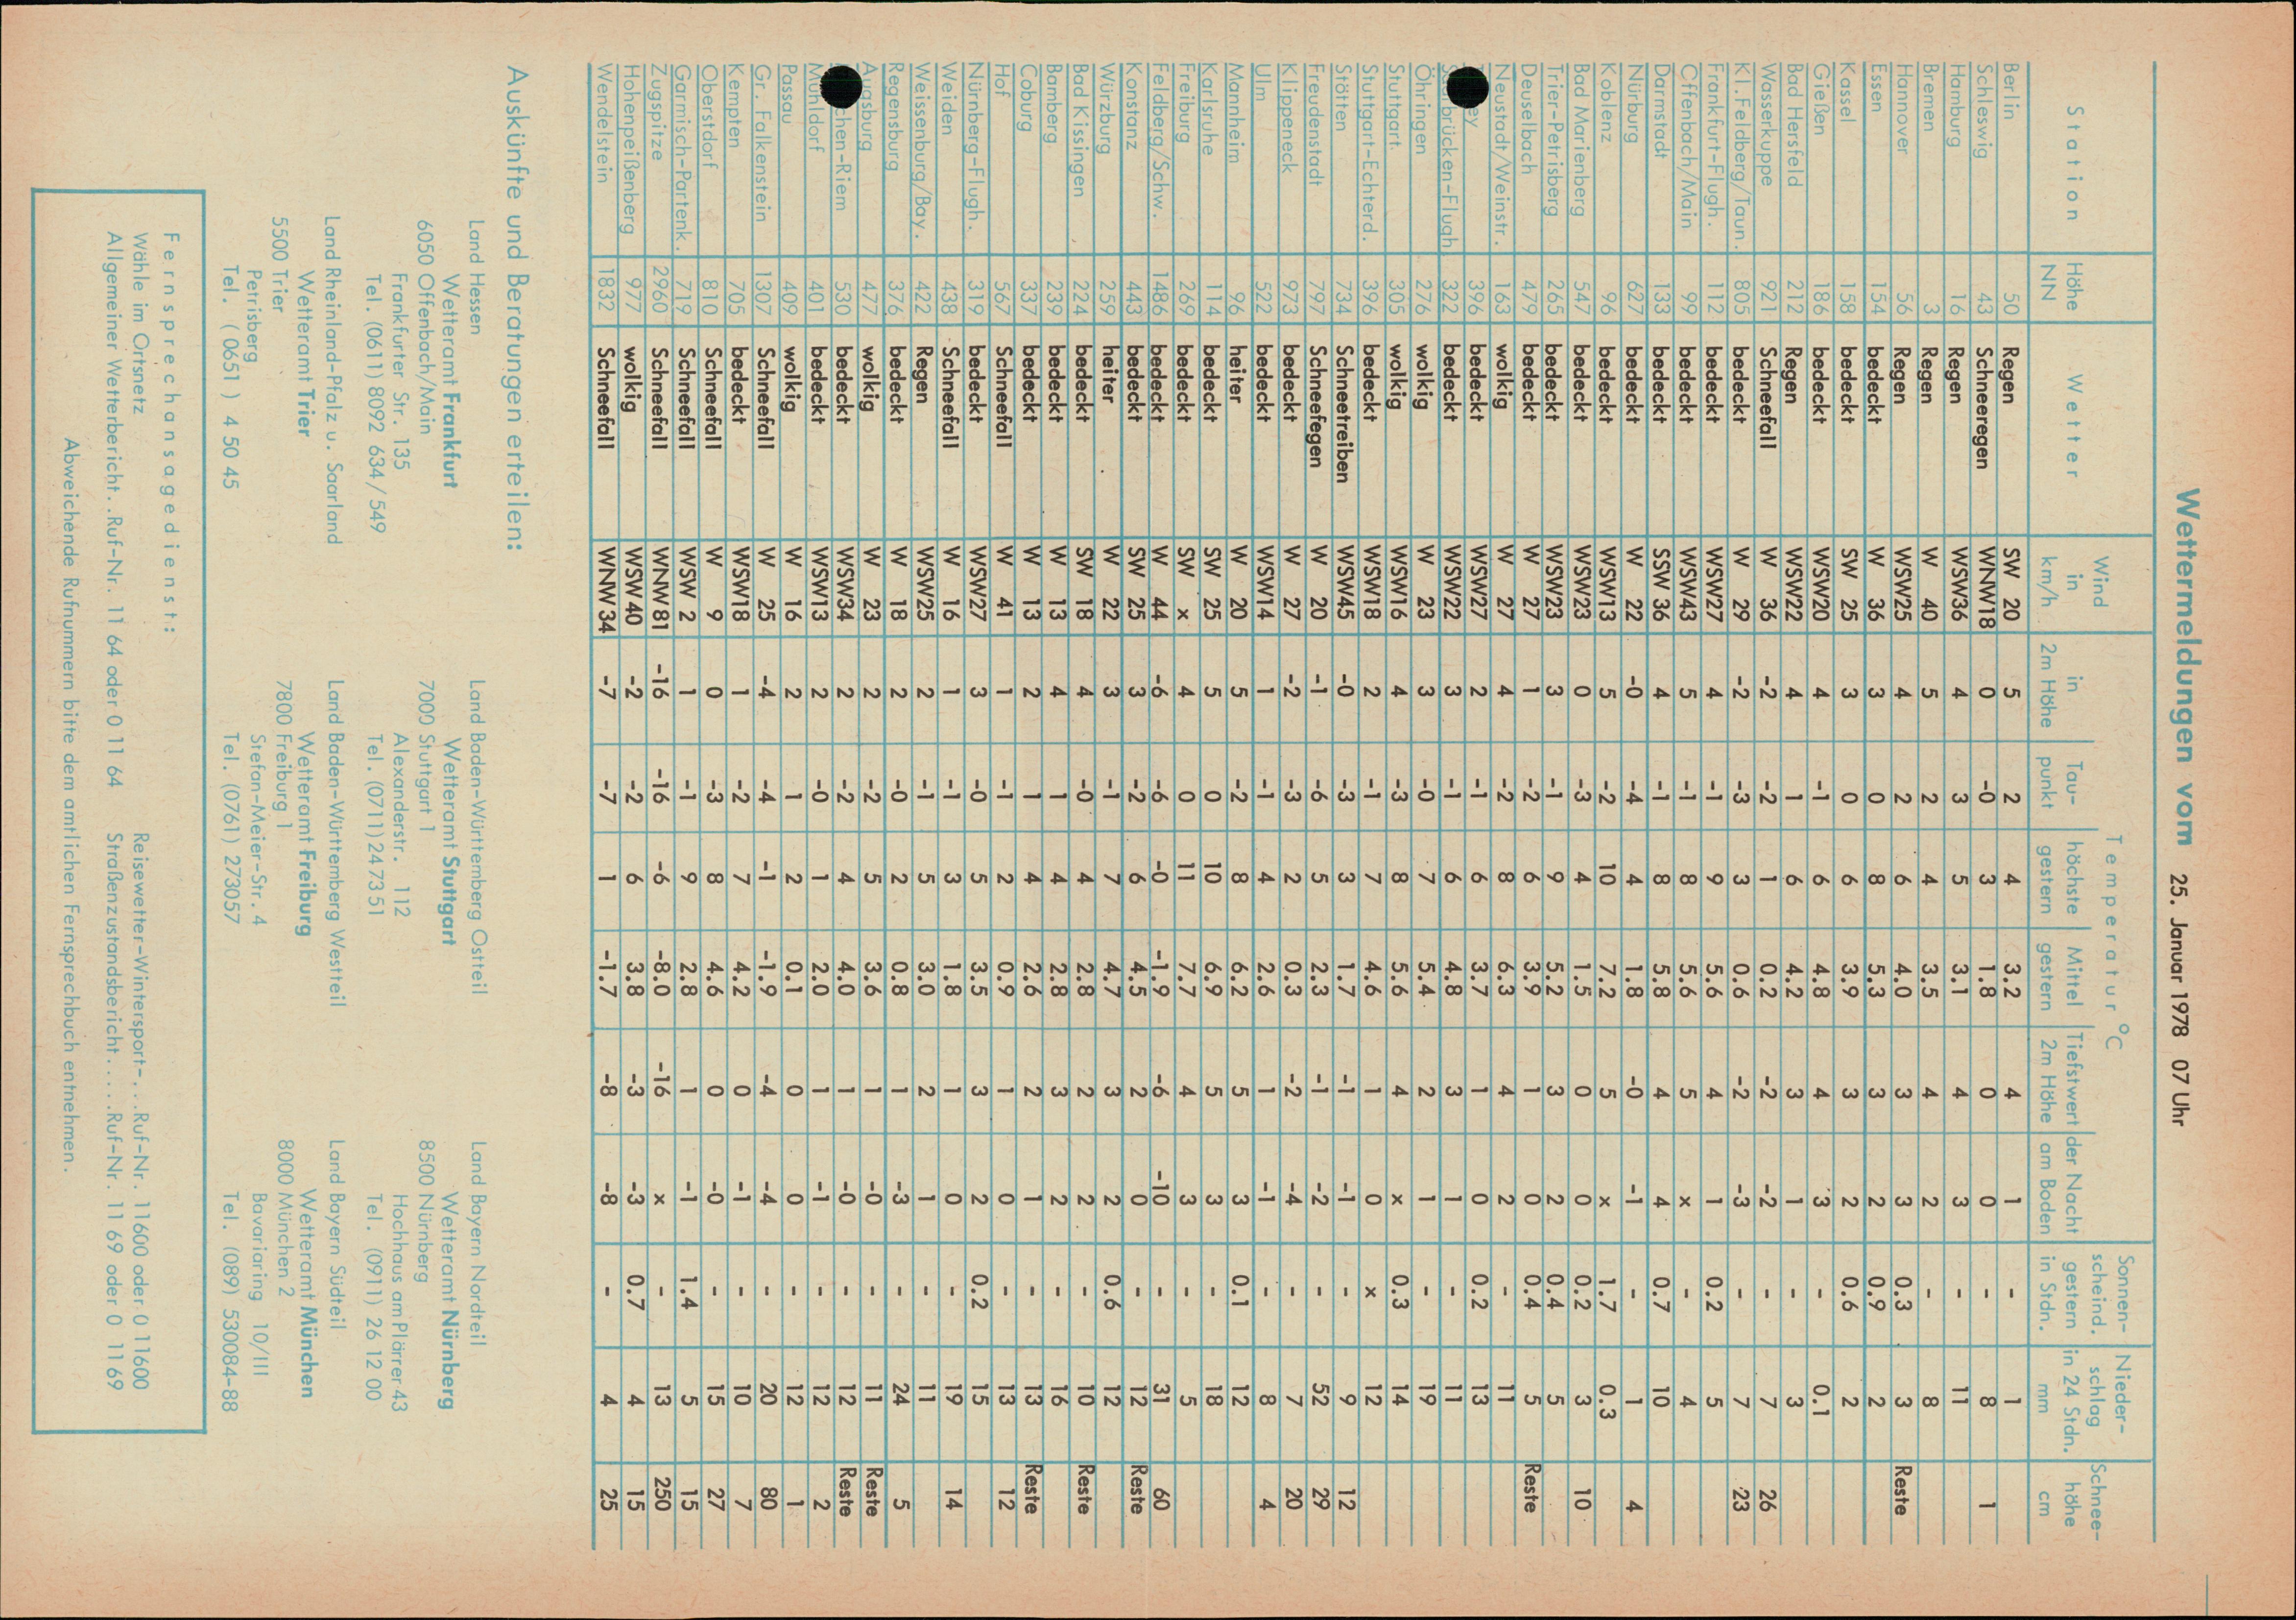 Wettermeldungen vom 25. Januar 1978 07 Uhr
Station Höhe NN Wetter Wind in km/h Temperatur °C in 2m Höhe Tau-punkt höchste gestern Mittel gestern Tiefstwert der Nacht 2m Höhe am Boden Sonnen-scheind. gestern in Stdn. Nieder-schlag in 24 Stdn. mm Schnee-höhe cm
Berlin 50 Regen SW 20 5 2 4 3.2 4 1 - 1
Schleswig 43 Schneeregen WNW18 0 -0 3 1.8 0 0 - 8 1
Hamburg 16 Regen WSW36 4 3 5 3.1 4 3 - 11
Bremen 3 Regen W 40 5 2 4 3.5 4 2 - 8
Hannover 56 Regen WSW25 4 2 6 4.0 3 3 0.3 3 Reste
Essen 154 bedeckt W 36 3 0 8 5.3 3 2 0.9 2
Kassel 158 bedeckt SW 25 3 0 6 3.9 3 2 0.6 2
Gießen 186 bedeckt WSW20 4 -1 6 4.8 4 3 - 0.1
Bad Hersfeld 212 Regen WSW22 4 1 6 4.2 3 1 - 3
Wasserkuppe 921 Schneefall W 36 -2 -2 1 0.2 -2 -2 - 7 26
Kl.Feldberg/Taun. 805 bedeckt W 29 -2 -3 3 0.6 -2 -3 - 7 23
Frankfurt-Flugh. 112 bedeckt WSW27 4 -1 9 5.6 4 1 0.2 5
Offenbach/Main 99 bedeckt WSW43 5 -1 8 5.6 5 x - 4
Darmstadt 133 bedeckt SSW 36 4 -1 8 5.8 4 4 0.7 10
Nürburg 627 bedeckt W 22 -0 -4 4 1.8 -0 -1 - 1 4
Koblenz 96 bedeckt WSW13 5 -2 10 7.2 5 x 1.7 0.3
Bad Marienberg 547 bedeckt WSW23 0 -3 4 1.5 0 0 0.2 3 10
Trier-Petrisberg 265 bedeckt WSW23 3 -1 9 5.2 3 2 0.4 5
Deuselbach 479 bedeckt W 27 1 -2 6 3.9 1 0 0.4 5 Reste
Neustadt/Weinstr. 163 wolkig W 27 4 -2 8 6.3 4 2 - 11
ey 396 bedeckt WSW27 2 -1 6 3.7 1 0 0.2 13
rbrücken-Flugh 322 bedeckt WSW22 3 -1 6 4.8 3 1 - 11
Öhringen 276 wolkig W 23 3 -0 7 5.4 2 1 - 19
Stuttgart 305 wolkig WSW16 4 -3 8 5.6 4 x 0.3 14
Stuttgart-Echterd. 396 bedeckt WSW18 2 -1 7 4.6 1 0 x 12
Stötten 734 Schneetreiben WSW45 -0 -3 3 1.7 -1 -1 - 9 12
Freudenstadt 797 Schneefegen W 20 -1 -6 5 2.3 -1 -2 - 52 29
Klippeneck 973 bedeckt W 27 -2 -3 2 0.3 -2 -4 - 7 20
Ulm 522 bedeckt WSW14 1 -1 4 2.6 1 -1 - 8 4
Mannheim 96 heiter W 20 5 -2 8 6.2 5 3 0.1 12
Karlsruhe 114 bedeckt SW 25 5 0 10 6.9 5 3 - 18
Freiburg 269 bedeckt SW x 4 0 11 7.7 4 3 - 5
Feldberg/Schw. 1486 bedeckt W 44 -6 -6 -0 -1.9 -6 -10 - 31 60
Konstanz 443 bedeckt SW 25 3 -2 6 4.5 2 0 - 12 Reste
Würzburg 259 heiter W 22 3 -1 7 4.7 3 2 0.6 12
Bad Kissingen 224 bedeckt SW 18 4 -0 4 2.8 2 2 - 10 Reste
Bamberg 239 bedeckt W 13 4 1 4 2.8 3 2 - 16
Coburg 337 bedeckt W 13 2 1 4 2.6 2 1 - 13 Reste
Hof 567 Schneefall W 41 1 -1 2 0.9 1 0 - 13 12
Nürnberg-Flugh. 319 bedeckt WSW27 3 -0 5 3.5 3 2 0.2 15
Weiden 438 Schneefall W 16 1 -1 3 1.8 1 0 - 19 14
Weissenburg/Bay. 422 Regen WSW25 2 -1 5 3.0 2 1 - 11
Regensburg 376 bedeckt W 18 2 -0 2 0.8 1 -3 - 24 5
Augsburg 477 wolkig W 23 2 -2 5 3.6 1 -0 - 11 Reste
chen-Riem 530 bedeckt WSW34 2 -2 4 4.0 1 -0 - 12 Reste
Mühldorf 401 bedeckt WSW13 2 -0 1 2.0 1 -1 - 12 2
Passau 409 wolkig W 16 2 1 2 0.1 0 0 - 12 1
Gr. Falkenstein 1307 Schneefall W 25 -4 -4 -1 -1.9 -4 -4 - 20 80
Kempten 705 bedeckt WSW18 1 -2 7 4.2 0 -1 - 10 7
Oberstdorf 810 Schneefall W 9 0 -3 8 4.6 0 -0 - 15 27
Garmisch-Partenk. 719 Schneefall WSW 2 1 -1 9 2.8 1 -1 1.4 5 15
Zugspitze 2960 Schneefall WNW81 -16 -16 -6 -8.0 -16 x - 13 250
Hohenpeißenberg 977 wolkig WSW40 -2 -2 6 3.8 -3 -3 0.7 4 15
Wendelstein 1832 Schneefall WNW34 -7 -7 1 -1.7 -8 -8 - 4 25
Auskünfte und Beratungen erteilen:
Land Hessen
Wetteramt Frankfurt
6050 Offenbach/Main
Frankfurter Str. 135
Tel. (0611) 8092 634/549
Land Baden-Württemberg Ostteil
Wetteramt Stuttgart
7000 Stuttgart 1
Alexanderstr. 112
Tel. (0711) 24 73 51
Land Bayern Nordteil
Wetteramt Nürnberg
8500 Nürnberg
Hochhaus am Plärrer 43
Tel. (0911) 26 12 00
Land Rheinland-Pfalz u. Saarland
Wetteramt Trier
5500 Trier
Petrisberg
Tel. (0651) 4 50 45
Land Baden-Württemberg Westteil
Wetteramt Freiburg
7800 Freiburg 1
Stefan-Meier-Str. 4
Tel. (0761) 273057
Land Bayern Südteil
Wetteramt München
8000 München 2
Bavariaring 10/III
Tel. (089) 530084-88
Fernsprechansagedienst:
Wähle im Ortsnetz Reisewetter-Wintersport-...Ruf-Nr. 11600 oder 0 11600
Allgemeiner Wetterbericht..Ruf-Nr. 11 64 oder 0 11 64 Straßenzustandsbericht.....Ruf-Nr. 11 69 oder 0 11 69
Abweichende Rufnummern bitte dem amtlichen Fernsprechbuch entnehmen.